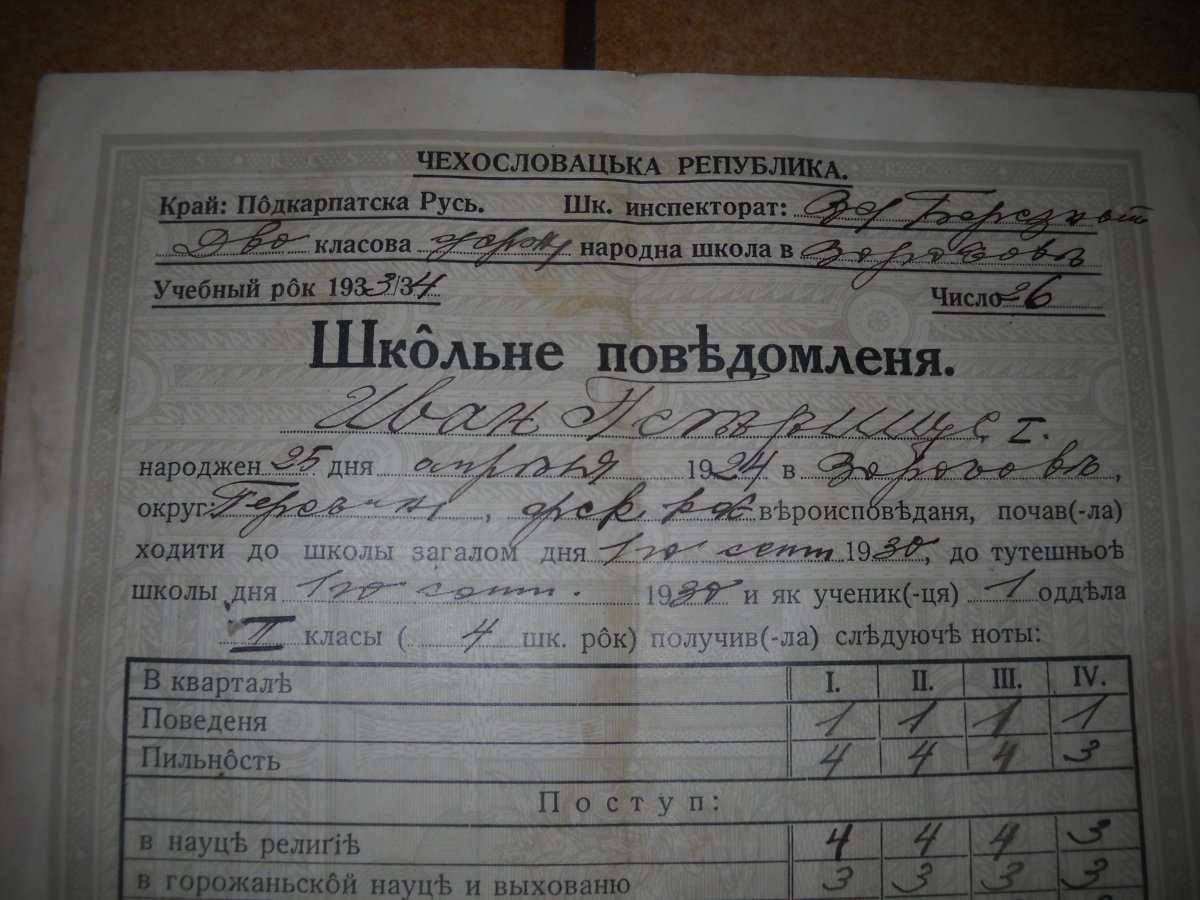 ЧЕХОСЛОВАЦЬКА РЕПУБЛИКА.
Край: Пôдкарпатска Русь. Шк. инспекторат:
Дво класова народна школа в
Учебный рôк 1933/34 Число 26
Шкôльне повѣдомленя.
Иван
народжен 25 дня апрѣля 1924 в
округ: вѣроисповѣданя, почав(-ла)
ходити до школы загалом дня 1го септ. 1930, до тутешньоѣ
школы дня 1го септ. 1930 и як ученик(-ця) 1 оддѣла
II класы ( 4 шк. рôк) получив(-ла) слѣдуючѣ ноты:
В кварталѣ I. II. III. IV.
Поведеня 1 1 1 1
Пильнôсть 4 4 4 3
Поступ:
в науцѣ религіѣ 4 4 4 3
в горожаньскôй науцѣ и выхованю 3 3 3 3